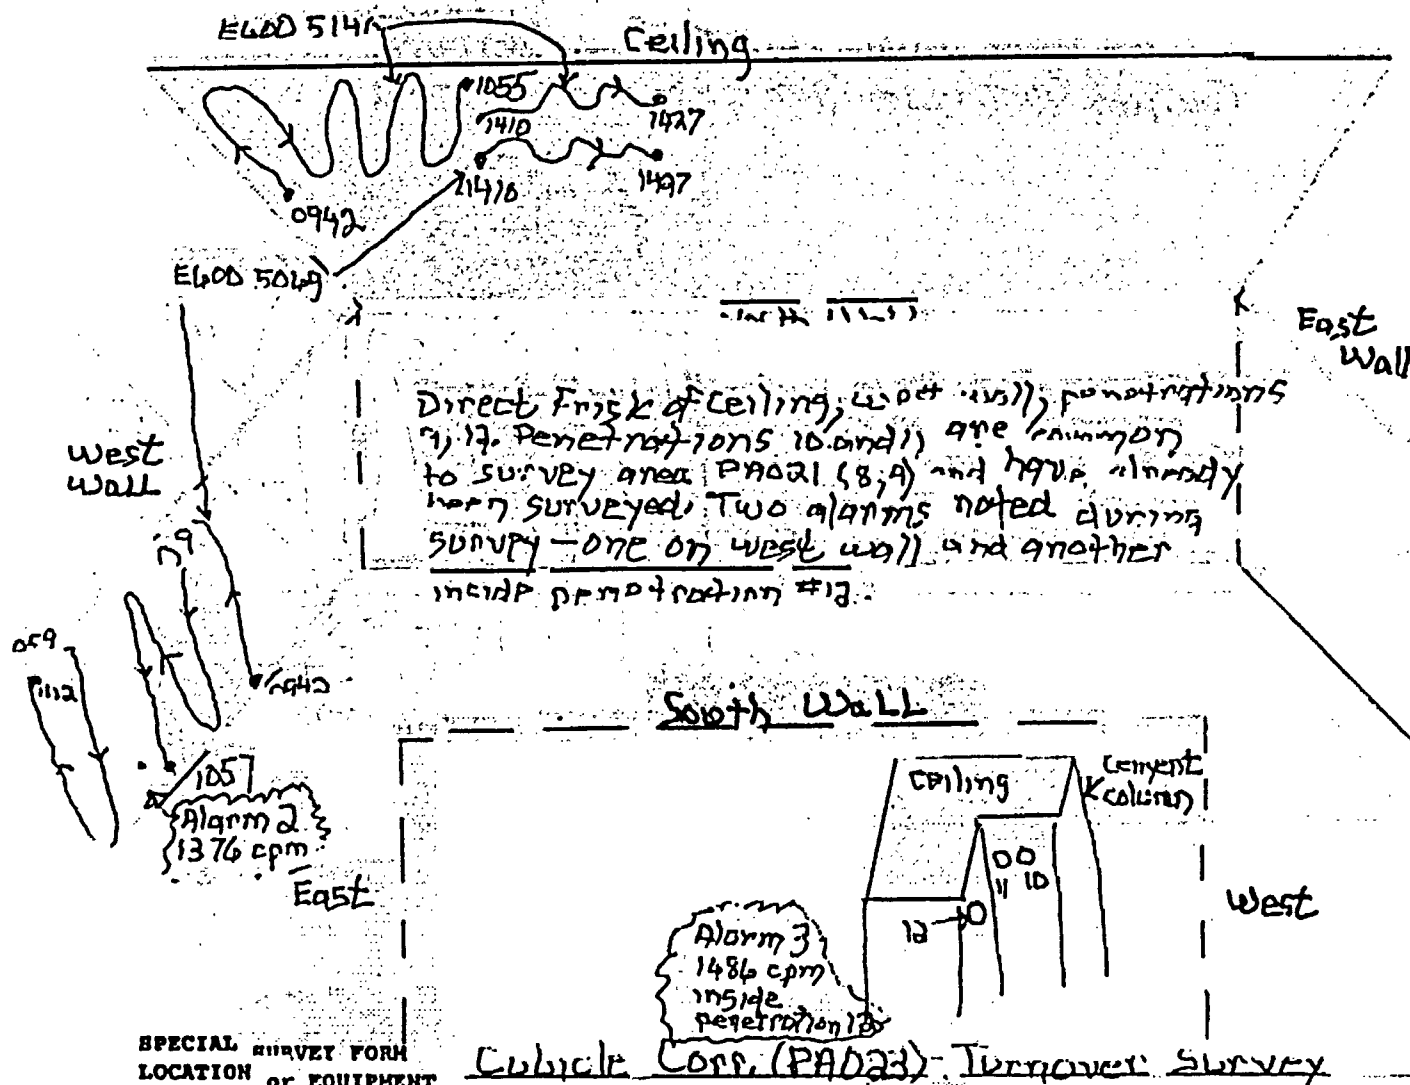 E600 5141
Ceiling
1055
1410
1427
1410
1497
0942
E600 5049
East
Wall
West
Wall
Direct Frisk of Ceiling, west wall, penetrations
12. Penetrations 10 and 11 are common
to survey area PA021 (8,9) and have already
been surveyed. Two alarms noted during
survey - one on west wall and another
inside penetration #12.
059
1112
0942
South Wall
1057
Alarm 2
1376 cpm
East
Ceiling
Cement
column
11 10
12
West
Alarm 3
1486 cpm
inside
penetration 12
SPECIAL SURVEY FORM
LOCATION or EQUIPMENT
Cubicle Corr. (PA023) Turnover Survey